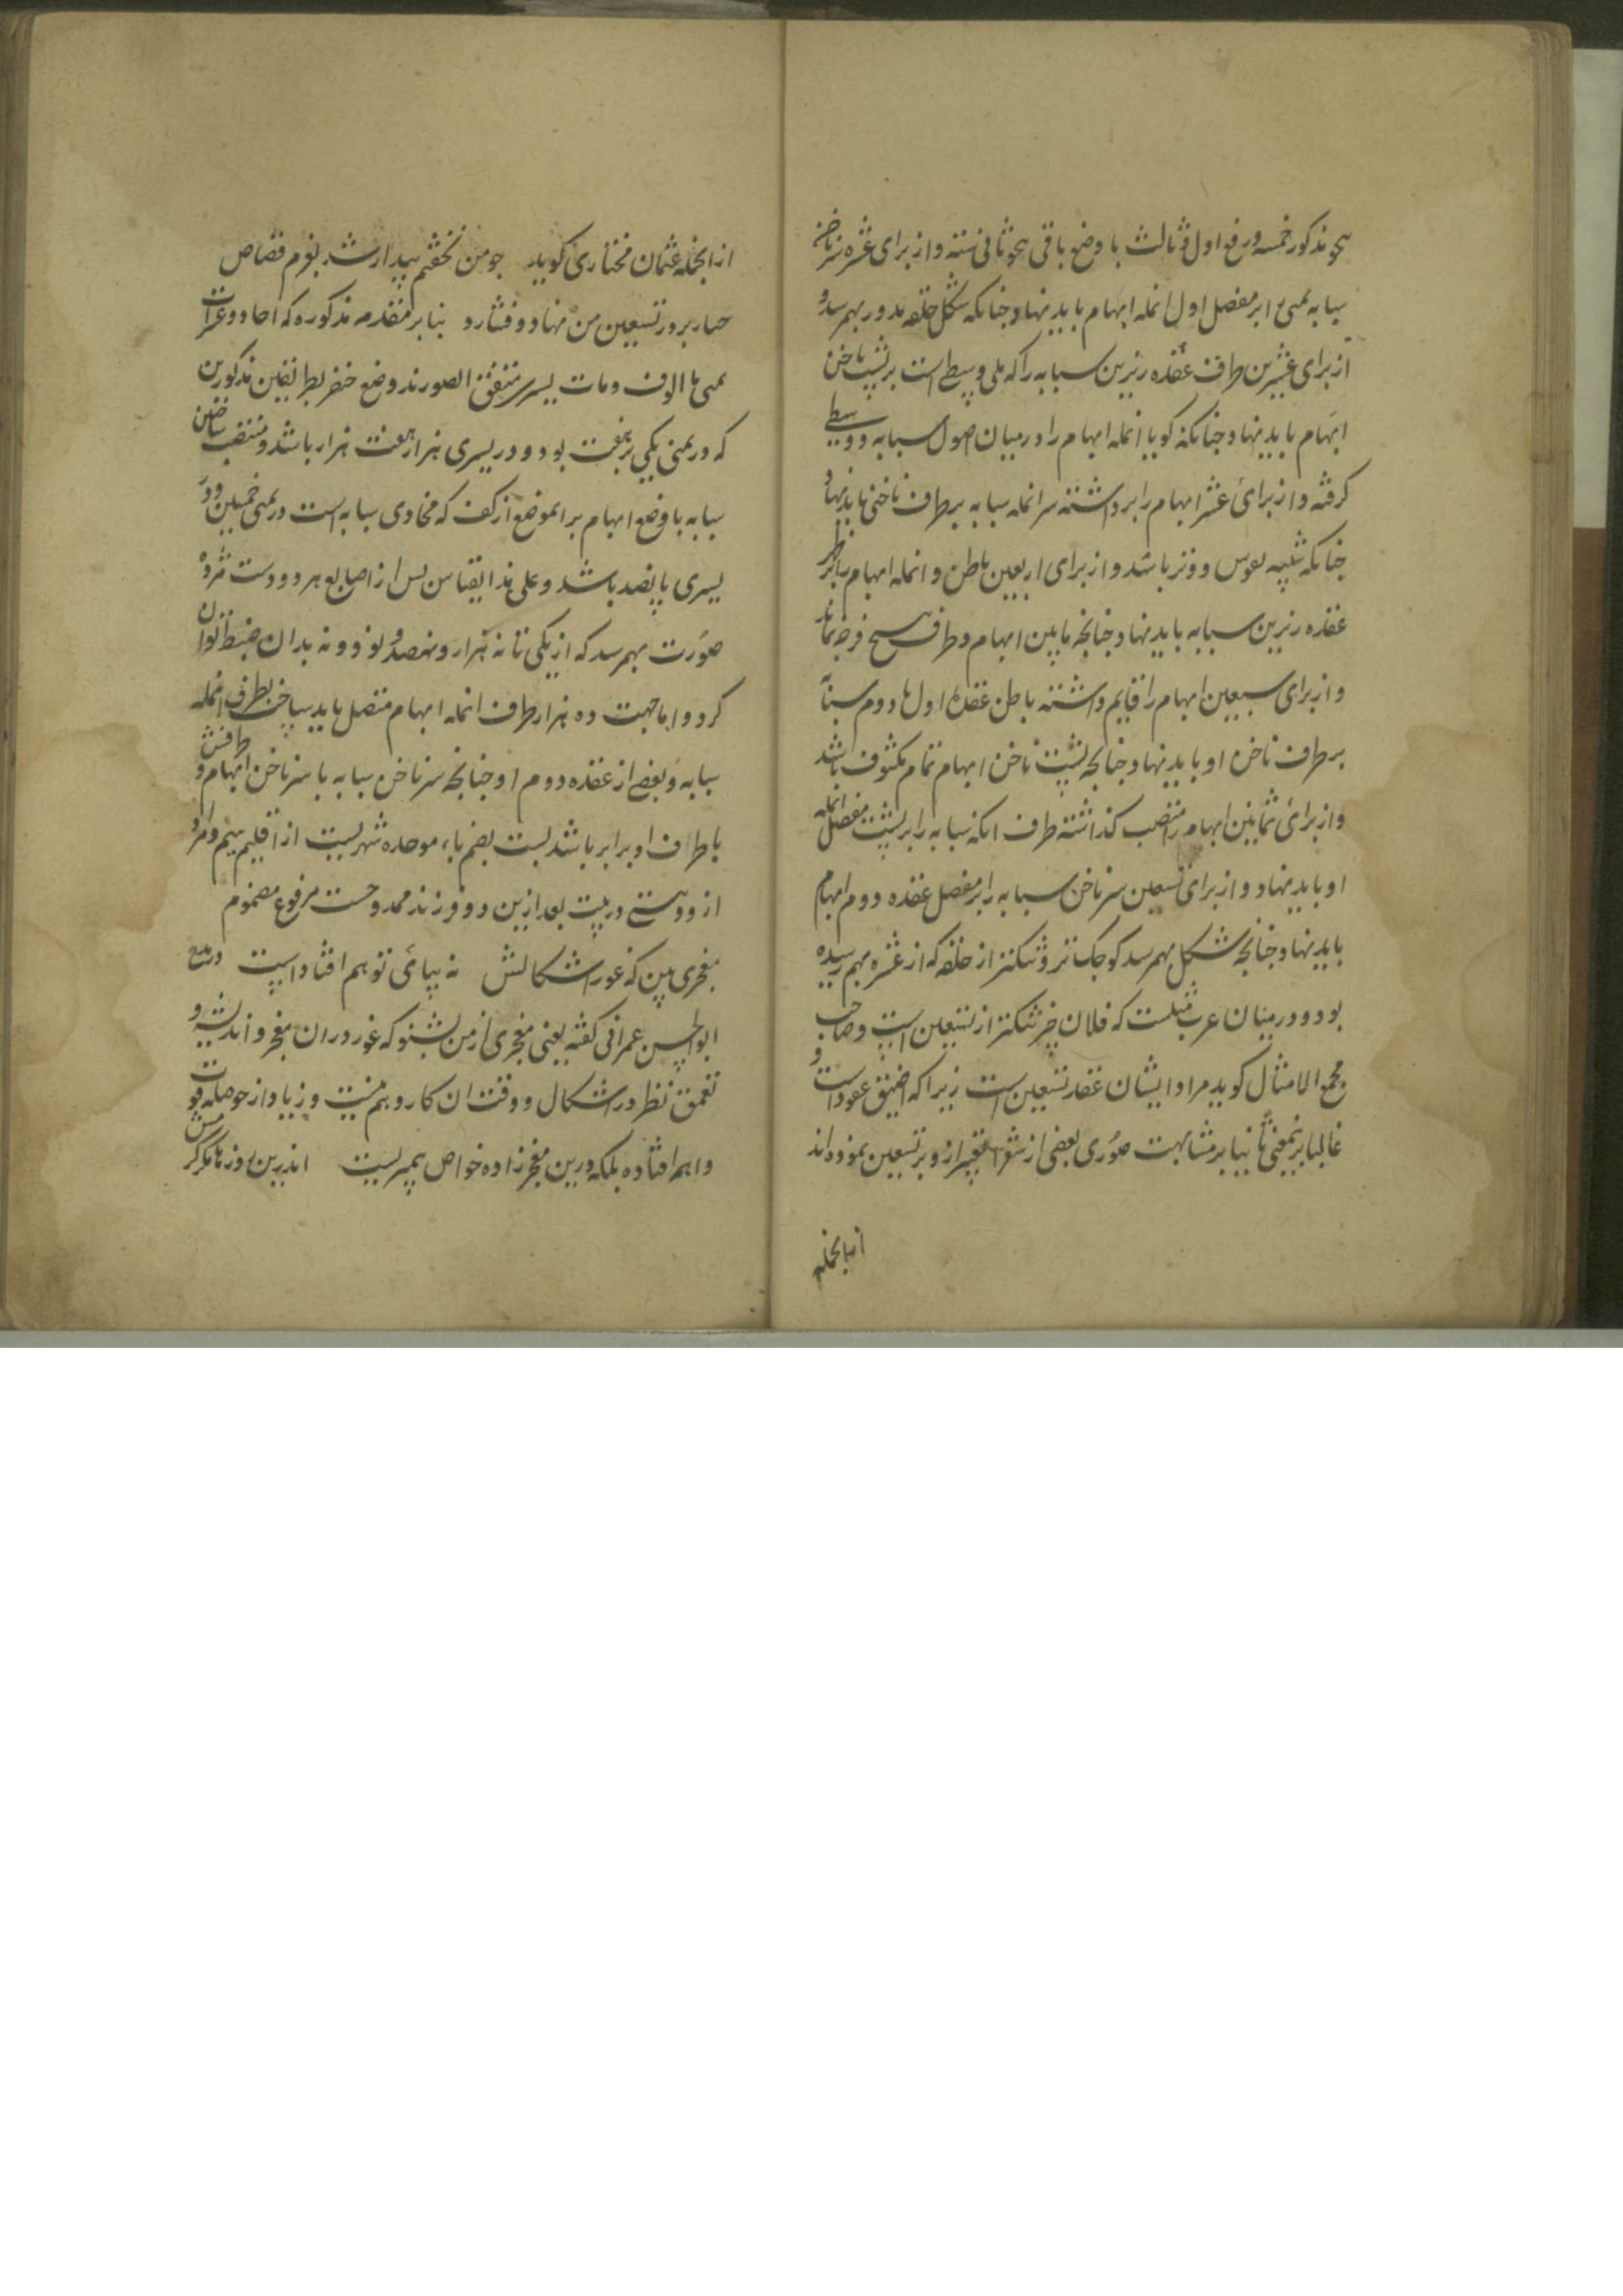 بنحو مذکور خمسه و رفع اول و ثالث با وضع باقی بنحو ثانی سته و از برای عشره سر ناخن
سبابه یمنی را بر مفصل اول انمله ابهام باید نهاد چنانکه شکل حلقه مدور بهم رسد و
از برای عشرین طرف عقده زیرین سبابه را که یلی وسطی است بر پشت ناخن
ابهام باید نهاد چنانکه کویا انمله ابهام را در میان اصول سبابه و وسطی
کرفته و از برای عشر ابهام را برداشته سر انمله سبابه بر طرف ناخنی باید نهاد
چنانکه شبیه بقوس و وتر باشد و از برای اربعین باطن و انمله ابهام را بر ظهر
عقده زیرین سبابه باید نهاد چنانچه مابین ابهام و طرف هیچ فرجه نماند
و از برای سبعین ابهام را قایم داشته باطن عقده اول یا دوم سبابه
بر طرف ناخن او باید نهاد چنانچه پشت ناخن ابهام تمام مکشوف باشد
و از برای ثمانین ابهام را منتصب کذاشته طرف انکه سبابه را بر پشت مفصل انمله
او باید نهاد و از برای تسعین سر ناخن سبابه را بر مفصل عقده دوم ابهام
باید نهاد چنانچه شکل بهم رسد کوچک تر و تنکتر از حلقه که از عشره بهم رسیده
بود و در میان عرب مثلست که فلان چیز تنکتر از تسعین است و صاحب
مجمع الامثال کوید مراد ایشان عقد تسعین است زیرا که اضیق عقود است و
غالبا برینمعنی تا بنا بر مشابهت صوری بعضی از شعرا تعبیر از و بر تسعین نموده اند
ازانجمله
ازانجمله عثمان مختاری کوید جو من نخفتم بیدار شد بغرم قصاص
حبار بردر تسعین من نهاد و فشارد بنا بر مقدمه مذکوره که احاد و عشرات
یمنی با الوف و مات یسری متفق الصورند وضع خنصر بطریقین مذکورین
که در یمنی یکی یا هفت بود و در یسری هزار یا هفت هزار باشد و منتصب ساختن
سبابه با وضع ابهام بر انموضع از کف که محاذی سبابه است در یمنی خمسین و در
یسری پانصد باشد و علی هذا القیاس پس از اصابع هر دو دست هژده
صورت بهم رسد که از یکی تا نه هزار و نهصد و نود و نه بدان ضبط توان
کرد و اما جهت ده هزار طرف انمله ابهام متصل باید ساخت بطرف انمله
سبابه و بعضی از عقده دوم او چنانچه سر ناخن سبابه با سر ناخن ابهام و طرفش
با طرف او برابر باشد بست بضم باء موحده شهریست از اقلیم سیم و مراد
از دو بستی در بیت بعد ازین دو فرزند ممدوحست مرفوع مضموم
مفخری بین که غور اشکالش نه بپای توهم افتاد است در مدح
ابوالحسن عمرانی کفته یعنی مفخری از من بشنو که غور در ان مفخر و اندیشه و
تعمق نظر در اشکال و دقت ان کار وهم نیست و زیاد از حوصله قوت
واهمه افتاده بلکه درین مفخر زاده خواص پیمبریست اندرین روزها مکر کرمش